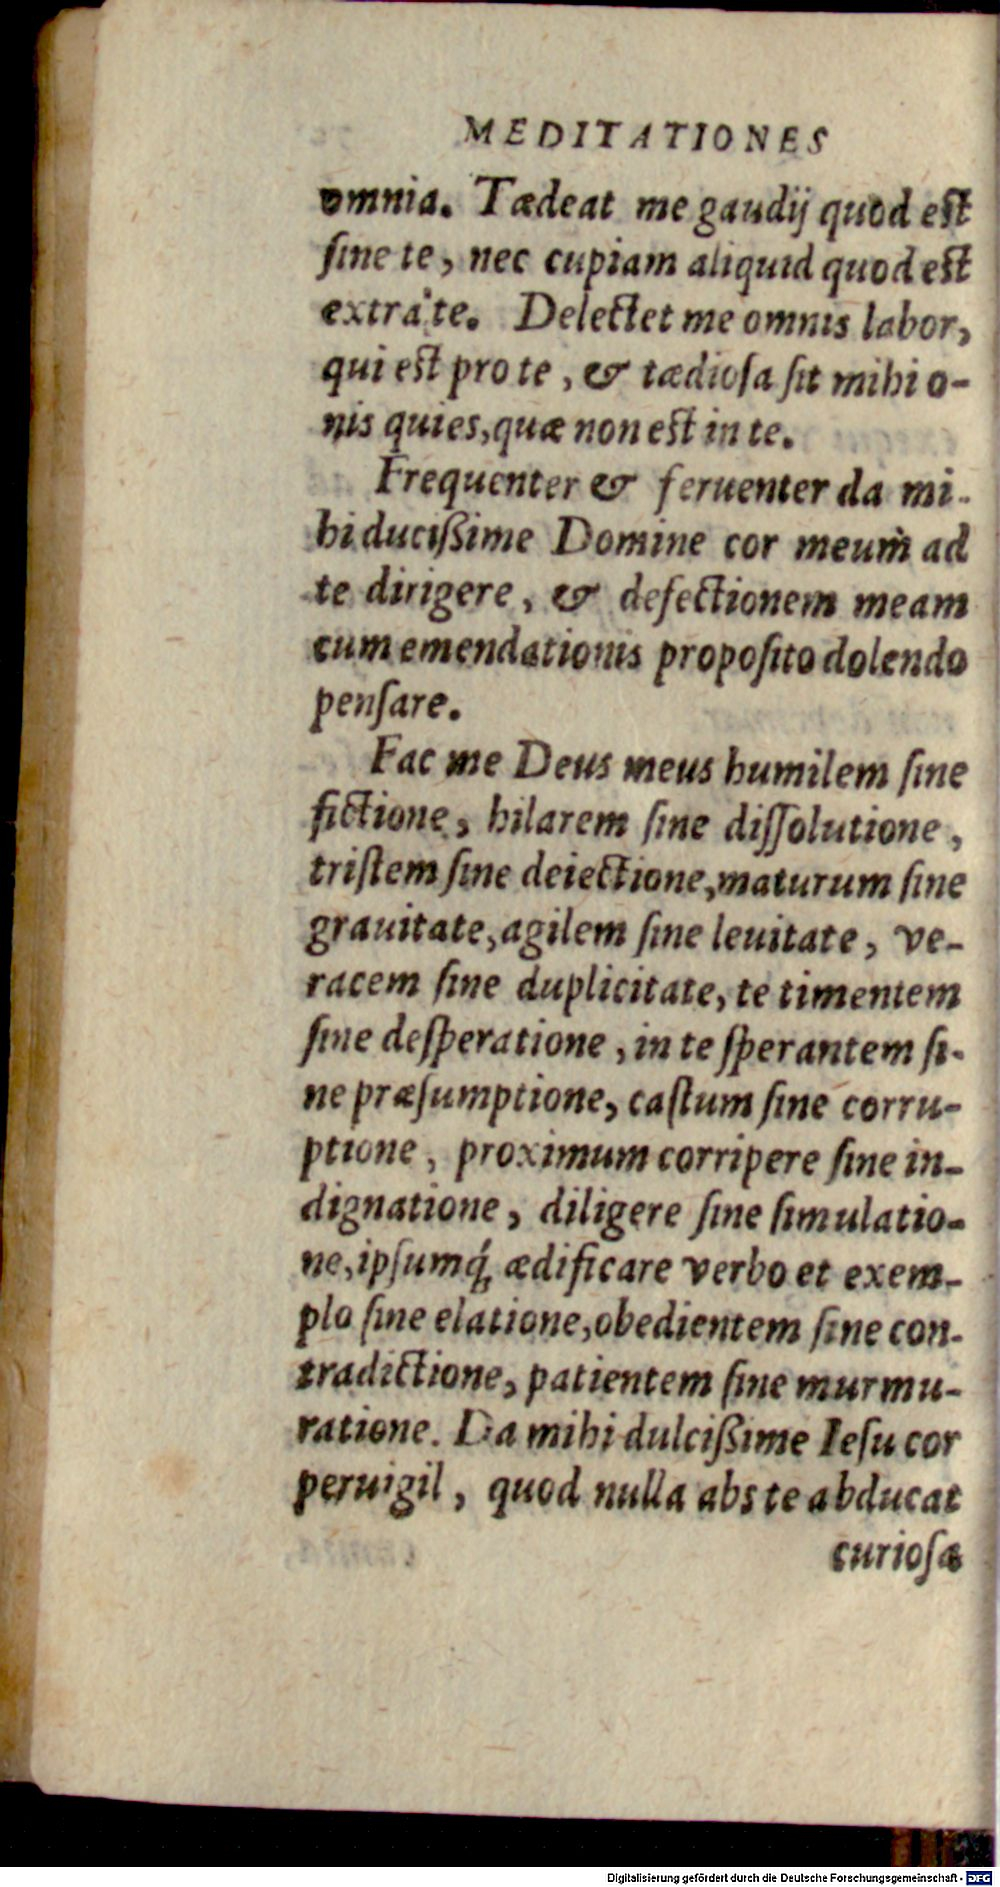 MEDITATIONES
omnia. Tædeat me gaudij quod est
sine te, nec cupiam aliquid quod est
extra te. Delectet me omnis labor,
qui est pro te, & tædiosa sit mihi o-
nis quies, quæ non est in te.
Frequenter & feruenter da mi-
hi ducißime Domine cor meum ad
te dirigere, & defectionem meam
cum emendationis proposito dolendo
pensare.
Fac me Deus meus humilem sine
fictione, hilarem sine dissolutione,
tristem sine deiectione, maturum sine
grauitate, agilem sine leuitate, ve-
racem sine duplicitate, te timentem
sine desperatione, in te sperantem si-
ne præsumptione, castum sine corru-
ptione, proximum corripere sine in-
dignatione, diligere sine simulatio-
ne, ipsumq́; ædificare verbo et exem-
plo sine elatione, obedientem sine con-
tradictione, patientem sine murmu-
ratione. Da mihi dulcißime Iesu cor
peruigil, quod nulla abs te abducat
curiosa
Digitalisierung gefördert durch die Deutsche Forschungsgemeinschaft - DFG